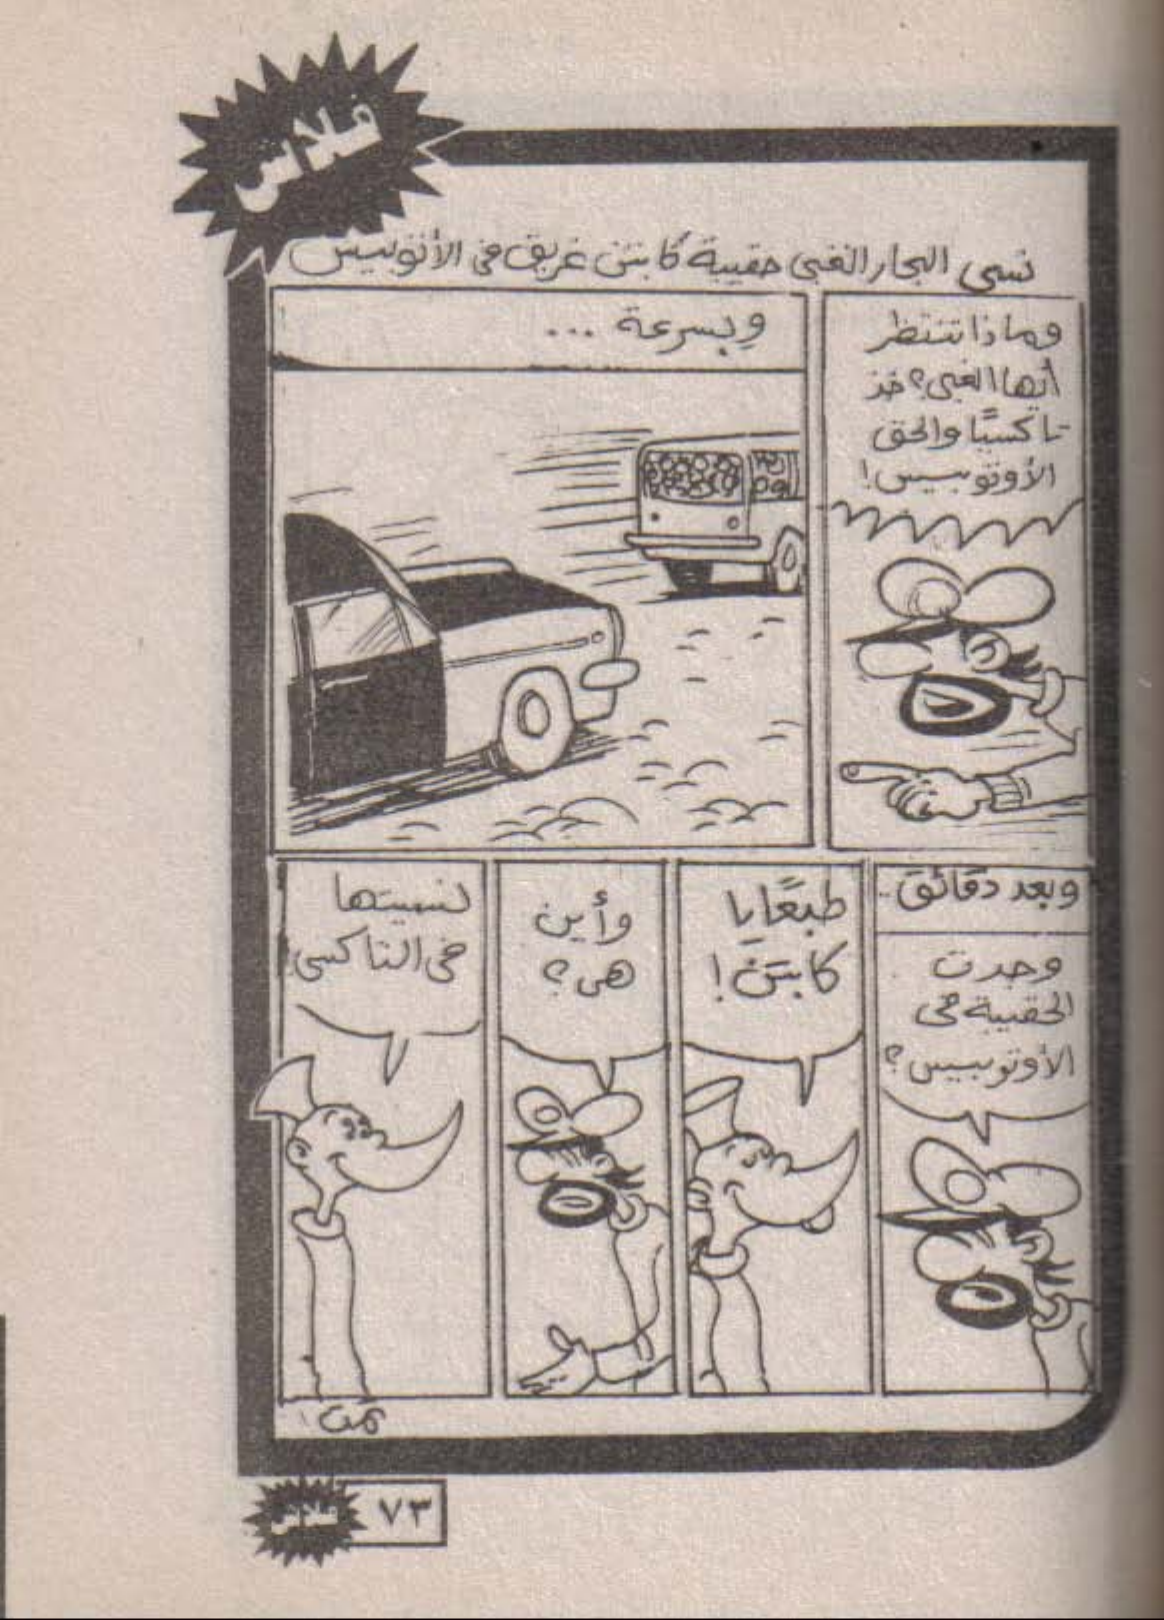 فلاش
نسى البحار الغبى حقيبة كابتن غريق فى الأتوبيس
وماذا تنتظر
أيها الغبى؟ خذ
تاكسيًا والحق
الأوتوبيس!
وبسرعة ...
وبعد دقائق..
وجدت
الحقيبة فى
الأوتوبيس؟
طبعًا يا
كابتن!
وأين
هى؟
نسيتها
فى التاكسى!
تمت!
فلاش
٧٣